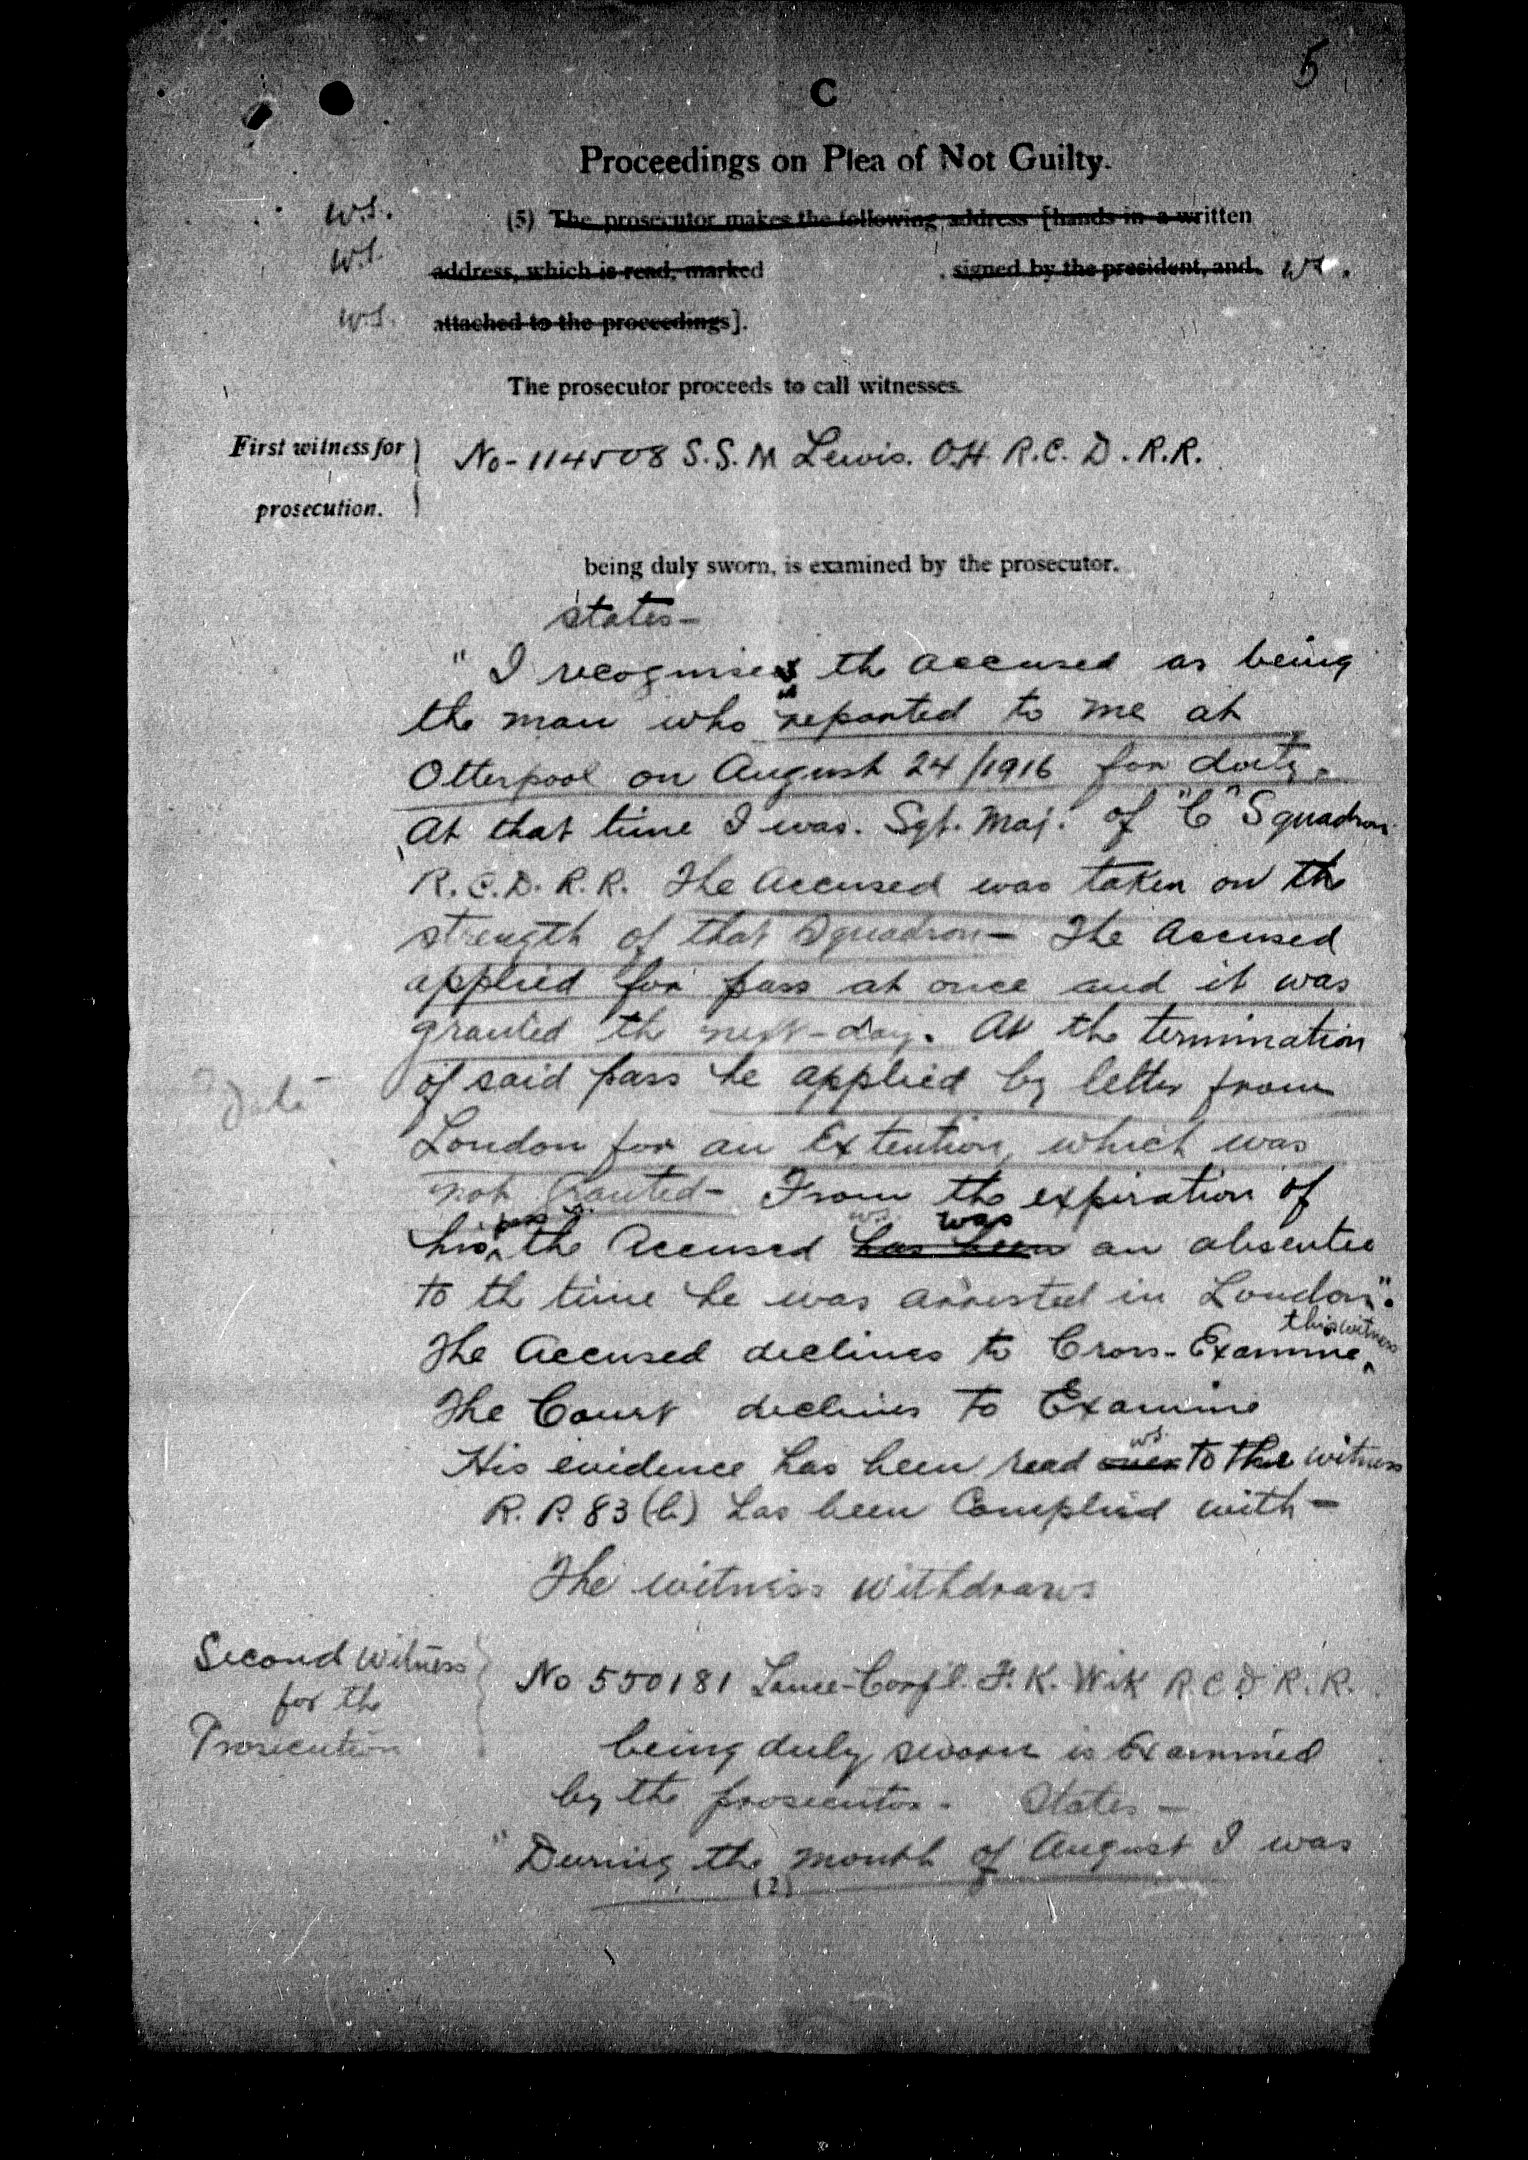 5
C
Proceedings on Plea of Not Guilty.
W.S. (5) The prosecutor makes the following address [hands in a written
W.S. address, which is read, marked , signed by the president, and W.S.
W.S. attached to the proceedings].
The prosecutor proceeds to call witnesses.
First witness for
prosecution.
No-114508 S.S.M Lewis. O.H. R.C.D.R.R.
being duly sworn, is examined by the prosecutor.
states-
" I recognise the accused as being
the man who reported to me at
Otterpool on August 24/1916 for duty.
At that time I was. Sgt. Maj. of "C" Squadron
R.C.D.R.R. The Accused was taken on the
strength of that Squadron- The Accused
applied for pass at once and it was
granted the next-day. At the termination
Date-
of said pass he applied by letter from
London for an Extention, which was
not Granted- From the expiration of
his pass W.S. the Accused has been W.S. was an absentee
to the time he was arrested in London".
The Accused declines to Cross-Examine this witness
The Court declines to Examine
His evidence has been read over W.S. to the witness
R.P. 83 (b) has been Complied with-
The witness withdraws
Second Witness
for the
Prosecution
No 550181 Lance-Corp'l. F.K. Wik R.C.D.R.R.
being duly sworn is Examined
by the prosecutor. States-
" During the month of August I was
(2)